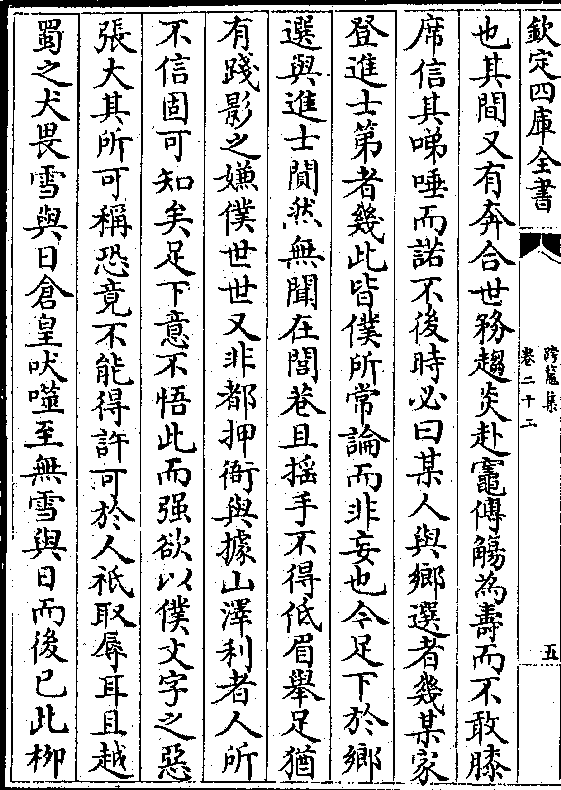 欽定四庫全書
跨鼇集
卷二十二
五
也其間又有奔合世務趨炎赴竈傅觴為壽而不敢膝
席信其唾唾而諾不後時必曰某人與鄉選者幾某家
登進士第者幾此皆僕所常論而非妄也今足下於鄉
選與進士闃然無聞在閭巷且揺手不得低眉舉足猶
有踐影之嫌僕世世又非都押衙與據山澤利者人所
不信固可知矣足下意不悟此而强欲以僕文字之惡
張大其所可稱恐竟不能得許可於人祇取辱耳且越
蜀之犬畏雪與日倉皇吠噬至無雪與日而後已此栁